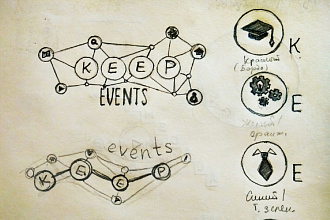 KEEP
EVENTS
events
KEEP
K
Красный
(Бордо)
E
E
Синий/
Т. зелен.